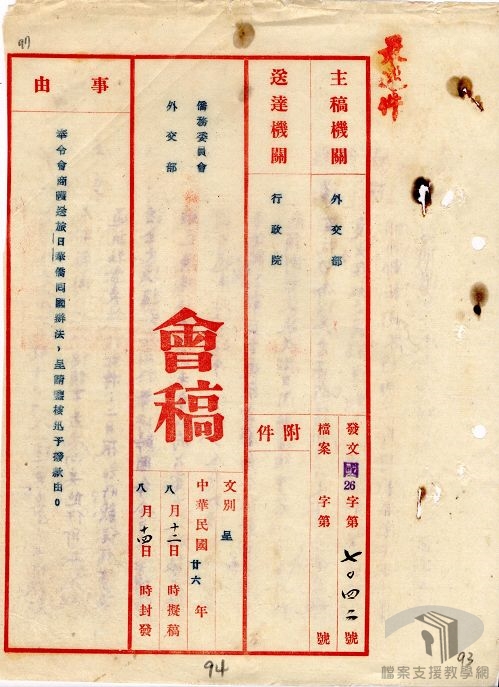 最速件
主稿機關 外交部
送達機關 行政院
附件
發文 歐26字第七〇四二號
檔案 字第 號
僑務委員會
外交部
會稿
文別 呈
中華民國廿六年
八月十二日 時擬稿
八月十四日 時封發
事由
奉令會商護送旅日華僑回國辦法，呈請鑒核迅予撥款由。
97
94
93
檔案支援教學網